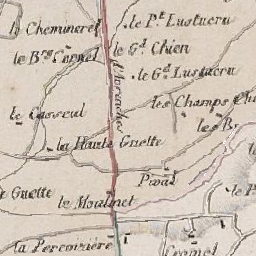 le Pt. Lustucru
le Chemineret
le Gd. Chien
le Brg. Cornet
le Gd. Lustucru
d'Avranches
les Champs
le Casseul
les B.
la Haute Guette
Guette
le Moulinet
le P
la Percoisière